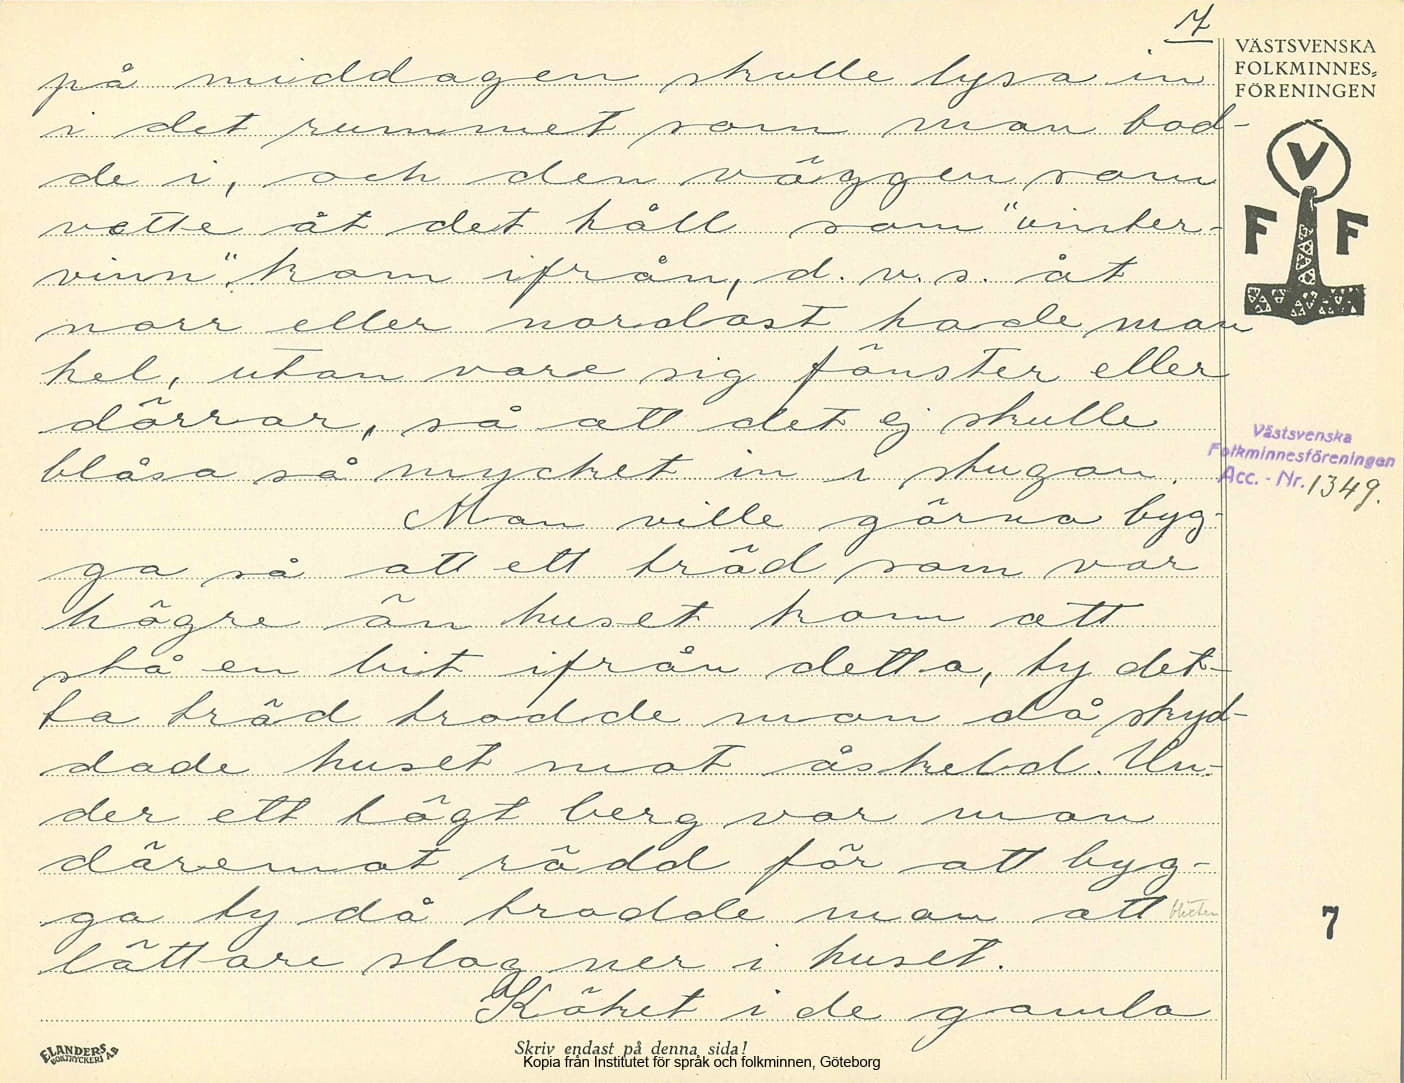 7
VÄSTSVENSKA
FOLKMINNES-
FÖRENINGEN
på middagen skulle lysa in
i det rummet som man bod-
de i, och den väggen som
vette åt det håll som "vinter-
vinn". kom ifrån, d. v. s. åt
norr eller nordost hade man
hel, utan vare sig fönster eller
dörrar, så att det ej skulle
blåsa så mycket in i stugan.
Man ville gärna byg-
ga så att ett träd som var
högre än huset kom att
stå en bit ifrån detta, ty det-
ta träd trodde man då skyd-
dade huset mot åskeld. Un-
der ett högt berg var man
däremot rädd för att byg-
ga ty då trodde man att blixten
lättare slog ner i huset.
Köket i de gamla
V
F F
Västsvenska
Folkminnesföreningen
Acc. - Nr. 1349.
7
ELANDERS
BOKTRYCKERI AB
Skriv endast på denna sida!
Kopia från Institutet för språk och folkminnen, Göteborg